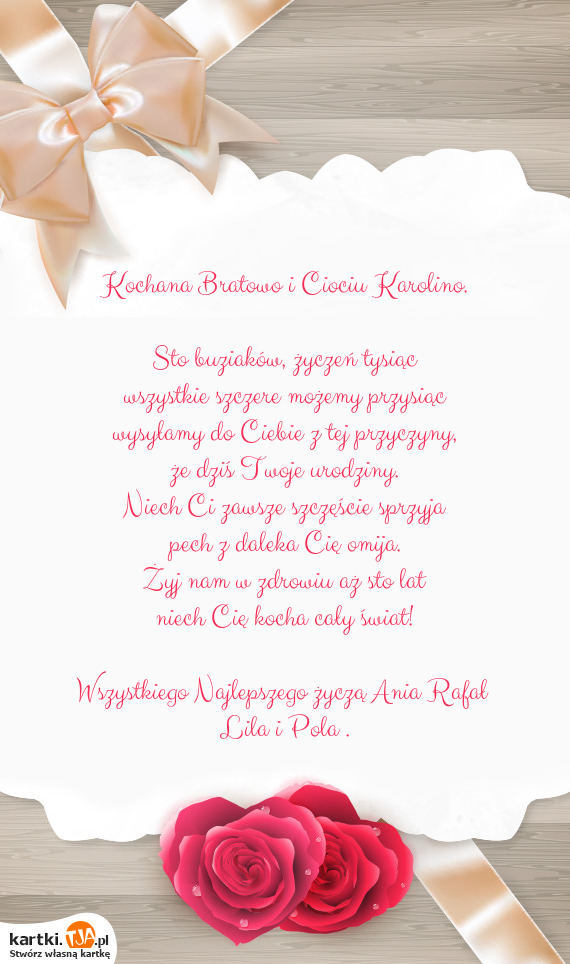 Kochana Bratowo i Ciociu Karolino.
Sto buziaków, życzeń tysiąc
wszystkie szczere możemy przysiąc
wysyłamy do Ciebie z tej przyczyny,
że dziś Twoje urodziny.
Niech Ci zawsze szczęście sprzyja
pech z daleka Cię omija.
Żyj nam w zdrowiu aż sto lat
niech Cię kocha cały świat!
Wszystkiego Najlepszego życzą Ania Rafał
Lila i Pola .
kartki.TJA.pl
Stwórz własną kartkę